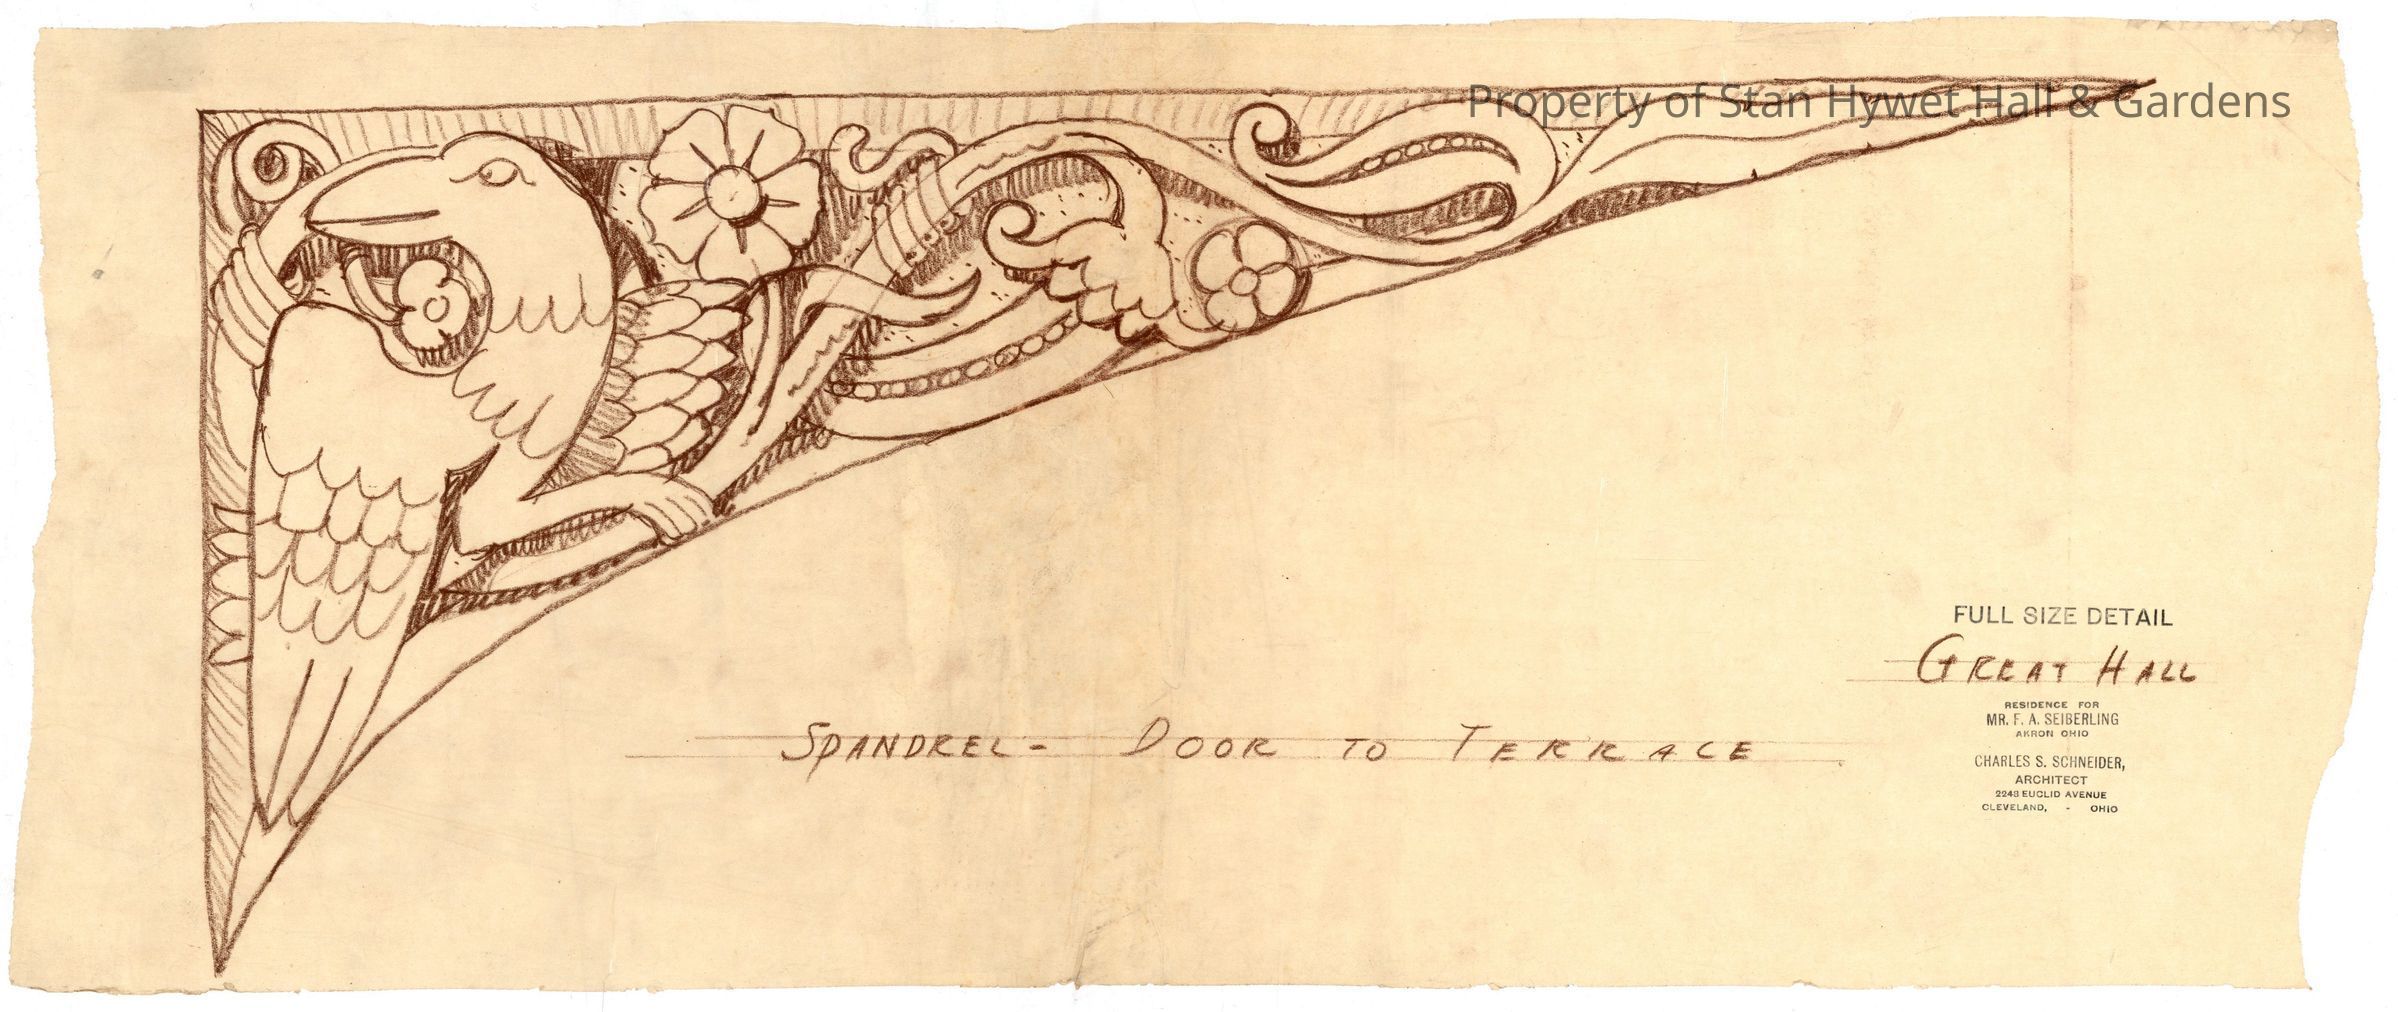 Property of Stan Hywet Hall & Gardens
FULL SIZE DETAIL
GREAT HALL
RESIDENCE FOR
MR. F. A. SEIBERLING
AKRON OHIO
CHARLES S. SCHNEIDER,
ARCHITECT
2248 EUCLID AVENUE
CLEVELAND, - OHIO
SPANDREL - DOOR TO TERRACE